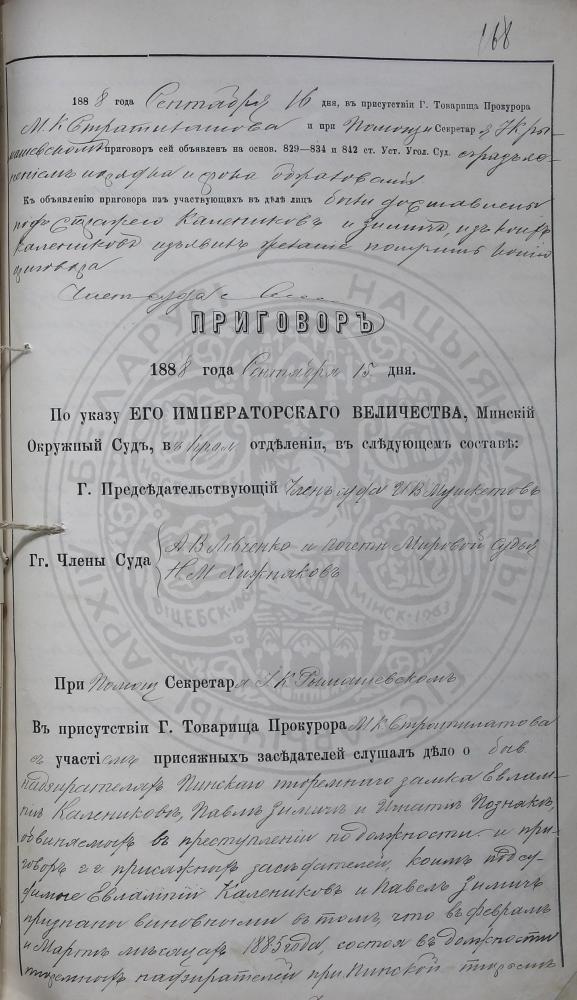 168
1888 года Сентября 16 дня, въ присутствіи Г. Товарища Прокурора
М К Стратилатова и при Помощн Секретаря І К Ры
машевскомъ приговоръ сей объявленъ на основ. 829—834 и 842 ст. Уст. Угол. Суд. съ разъяс
неніемъ порядка и срока обжалованія
Къ объявленію приговора изъ участвующихъ въ дѣлѣ лицъ были доставлены
подъ стражею Калениковъ и Зимичъ, изъ коихъ
Калениковъ изъявилъ желаніе получить копію
приговора
Членъ суда
ПРИГОВОРЪ
1888 года Сентября 15 дня.
По указу ЕГО ИМПЕРАТОРСКАГО ВЕЛИЧЕСТВА, Минскій
Окружный Судъ, въ отдѣленіи, въ слѣдующемъ составѣ:
Г. Предсѣдательствующій Членъ суда И В Мушкетовъ
Гг. Члены Суда А В Левченко и почетн Мировой Судья
Н М Хижняковъ
При Помощ Секретаря І К Рымашевскомъ
Въ присутствіи Г. Товарища Прокурора М К Стратилатова
съ участіемъ присяжныхъ засѣдателей слушалъ дѣло о быв
надзирателяхъ Пинскаго тюремнаго замка Евлам
піѣ Калениковѣ, Павлѣ Зимичѣ и Игнатіѣ Познякѣ,
обвиняемыхъ въ преступленіи по должности и при
говоръ г.г. присяжныхъ засѣдателей, коимъ подсу
димые Евлампій Калениковъ и Павелъ Зимичъ
признаны виновными въ томъ, что въ Февралѣ
и Мартѣ мѣсяцахъ 1885 года, состоя въ должности
тюремныхъ надзирателей при Пинской тюрьмѣ